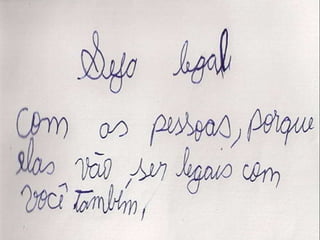 Seja legal
com as pessoas, porque
elas vão ser legais com
você também,